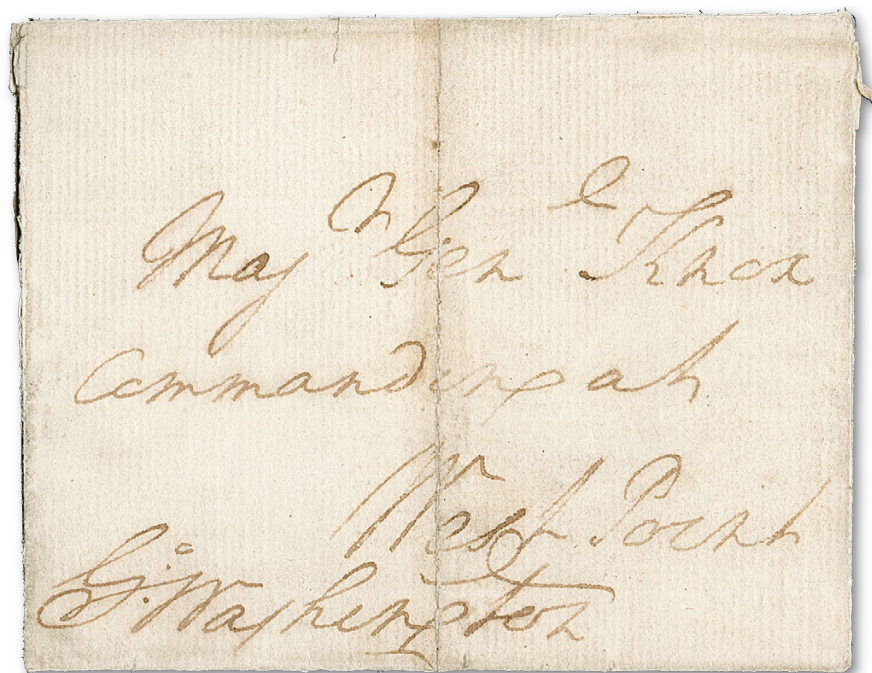 Majr. Genl. Knox
Commanding at
West Point
Go: Washington